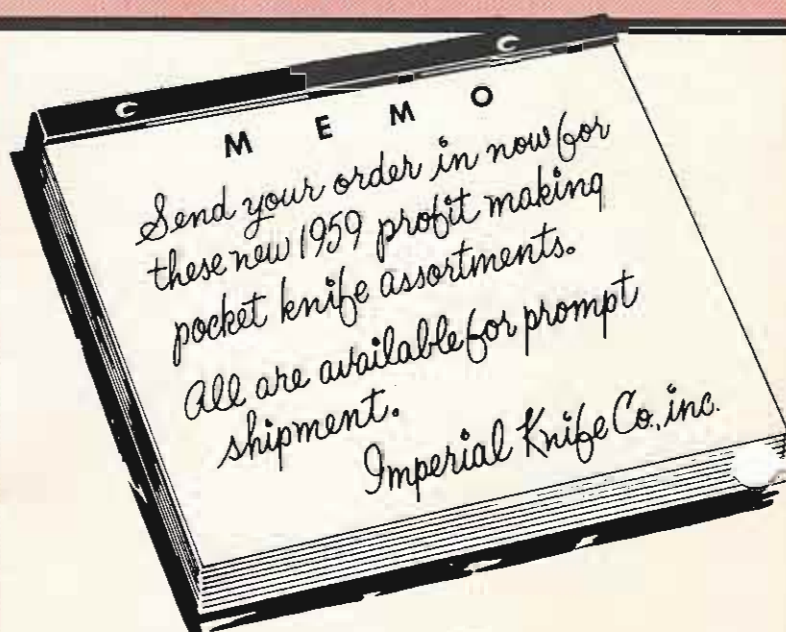 MEMO
Send your order in now for
these new 1959 profit making
pocket knife assortments.
All are available for prompt
shipment.
Imperial Knife Co., inc.